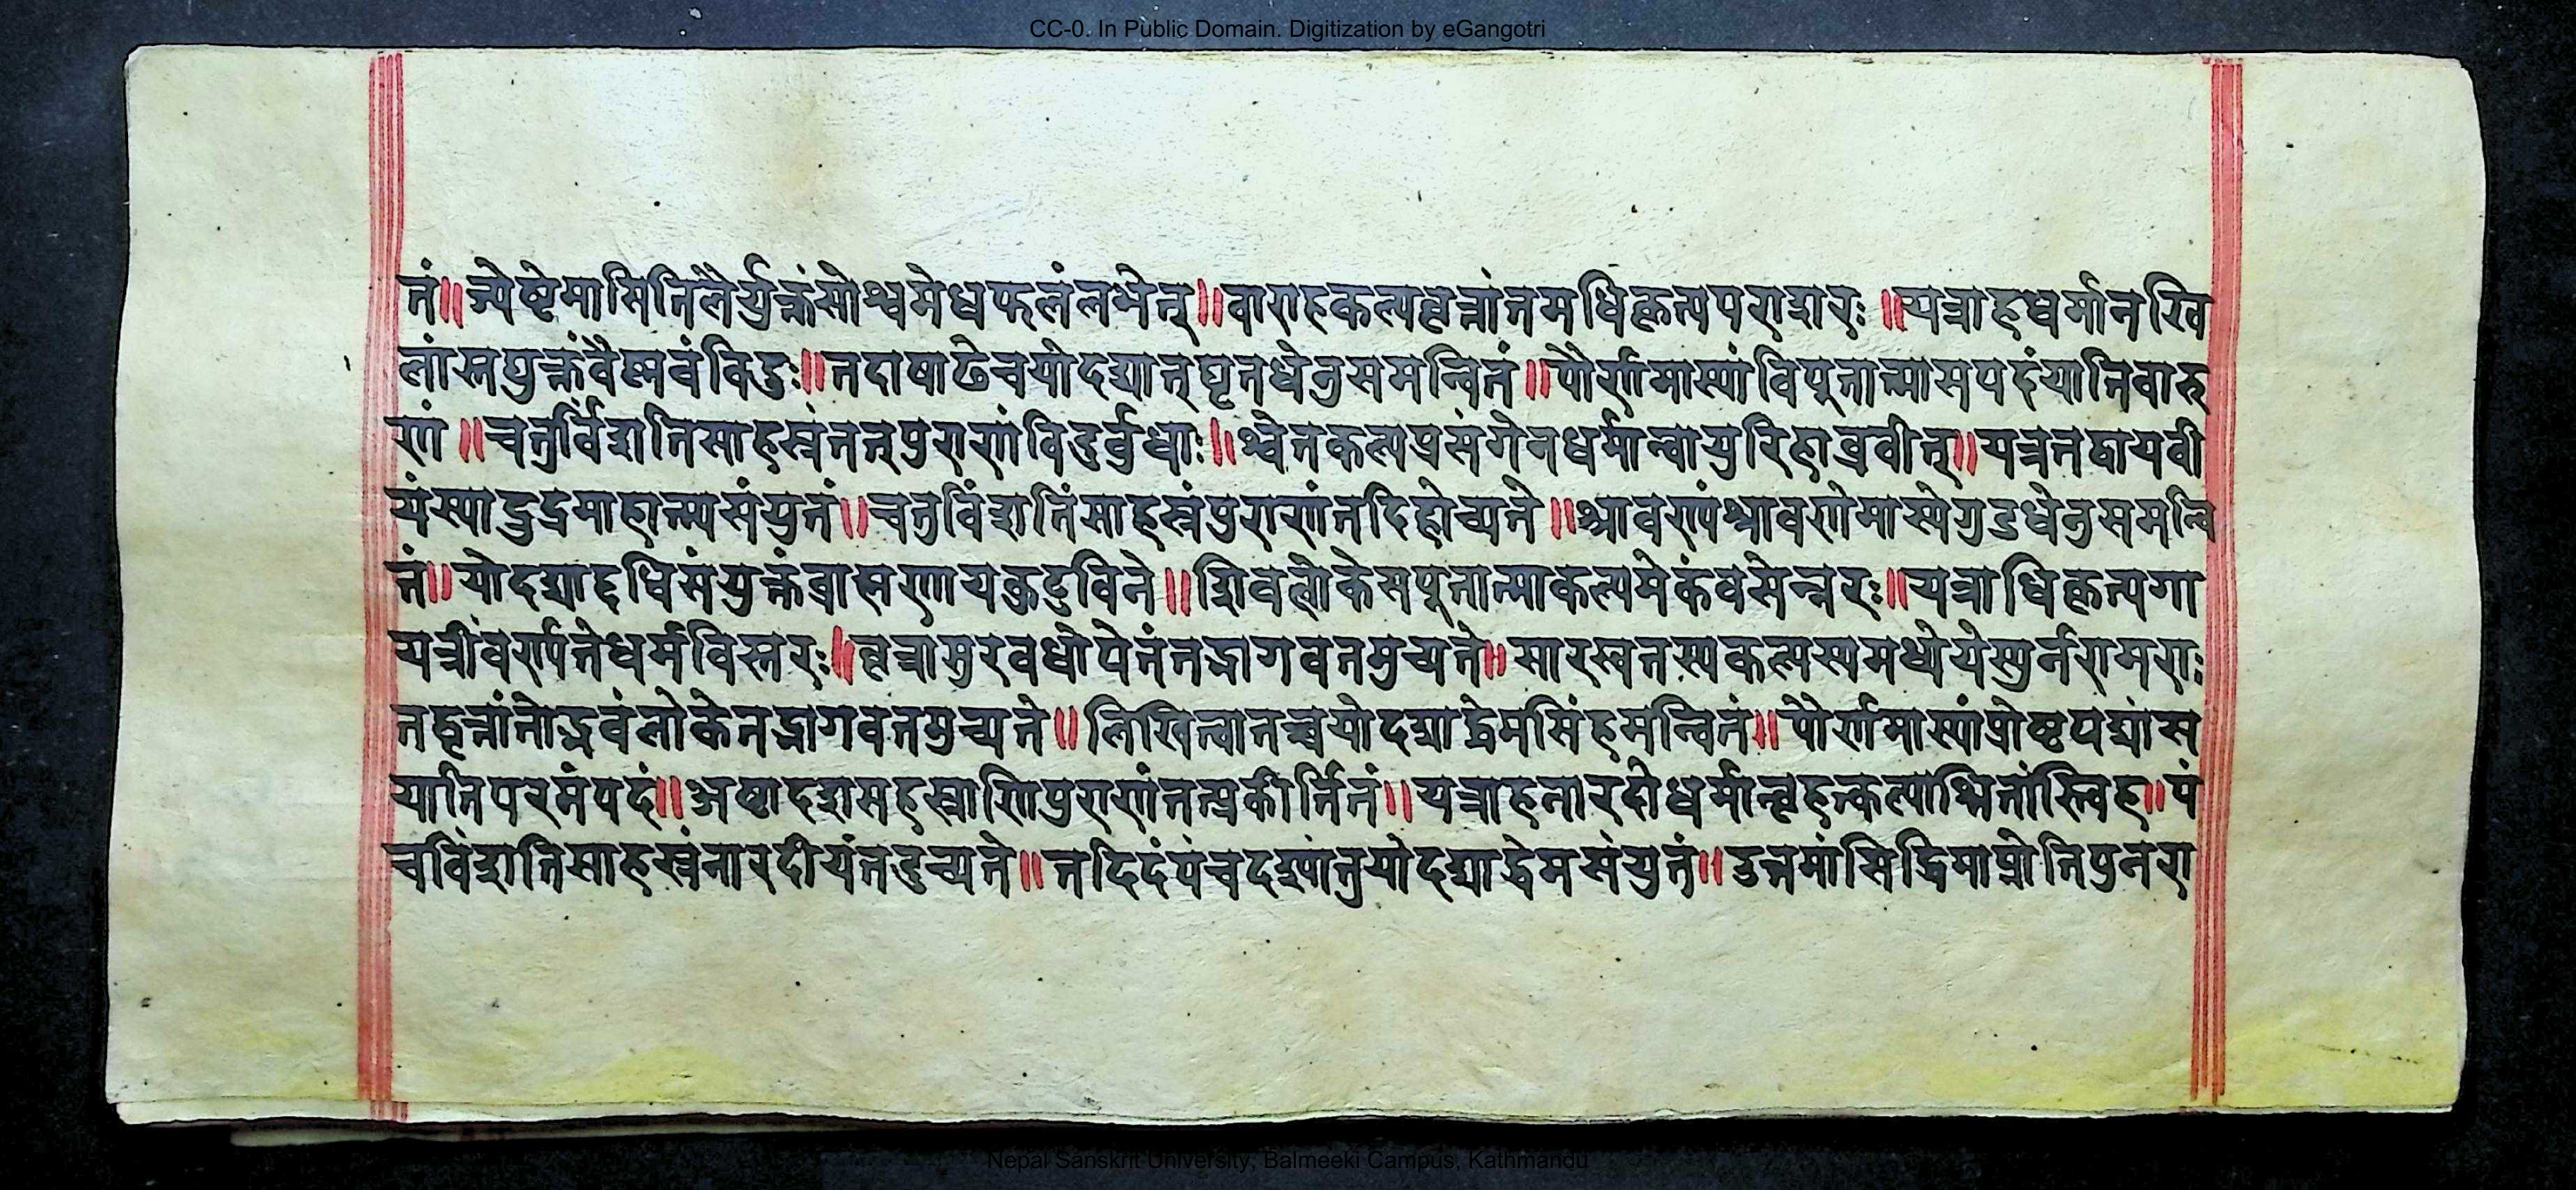 CC-0. In Public Domain. Digitization by eGangotri
तं॥ ज्येष्टेमासितिलैर्युक्तंसोश्वमेधफलंलभेत्॥वाराहकल्पवृत्तांतमधिकृत्यपराशरः ॥यत्राहधर्मानखि
लांस्तद्युक्तंवैष्णवंविदुः॥तदाषाढेचयोदद्यात्घृतधेनुसमन्वितं॥पौर्णमास्यांविपूतात्मासपदंयातिवारु
णं ॥चतुर्विंशतिसाहस्रंतत्पुराणंविदुर्बुधाः॥श्वेतकल्पप्रसंगेनधर्मान्वायुरिहाब्रवीत्॥यत्रतद्वायवी
यंस्याद्रुद्रमाहात्म्यसंयुतं॥चतुर्विंशतिंसाहस्रंपुराणंतदिहोच्यते॥श्रावण्यंश्रावणेमास्येगुडधेनुसमन्वि
तं॥योदद्याद्दधिसंयुक्तंब्राह्मणायकुटुविने॥शिवलोकेसपूतात्माकल्पमेकंवसेन्नरः॥यत्राधिकृत्यगा
यत्रींवर्ण्यतेधर्मविस्तरः॥वृत्रासुरवधोपेतंतद्भागवतमुच्यते॥सारस्वतस्यकल्पस्यमध्येयेस्युर्नरामराः
तद्वृत्तांतोद्भवंलोकेतद्भागवतमुच्यते॥लिखित्वातच्चयोदद्याद्धेमसिंहमन्वितं॥पौर्णमास्यांप्रोष्ठपद्यांस
यातिपरमंपदं॥अष्ठादशसहस्राणिपुराणंतत्प्रकीर्तितं॥यत्राहनारंदोधर्मान्बृहत्कल्पाश्रितांस्त्विह॥पं
चविंशतिसाहस्रंनारदीयंतदुच्यते॥तदिदंपंचदश्यांतुयोदद्याद्धेमसंयुतं॥उत्तमांसिद्धिमाप्नोतिपुनरा
Nepal Sanskrit University, Balmeeki Campus, Kathmandu